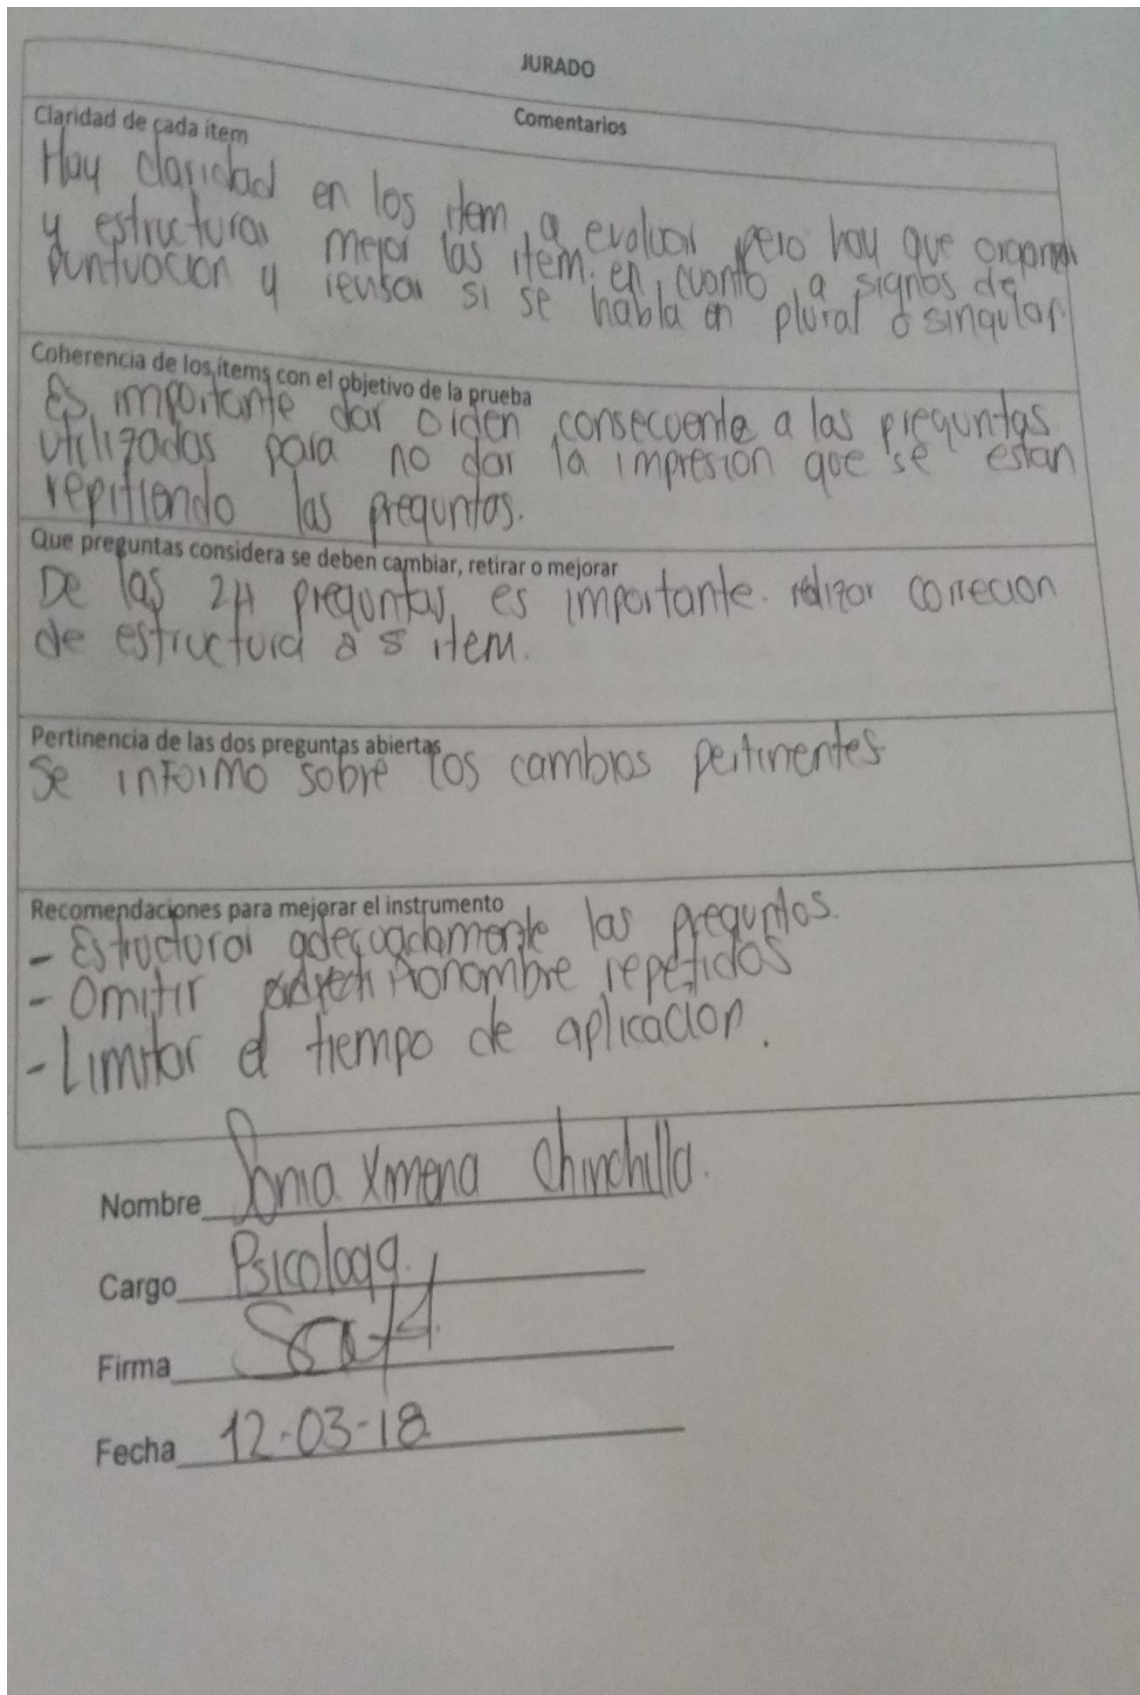 JURADO
Comentarios
Claridad de cada ítem
Hay claridad en los item a evaluar pero hay que organizar
y estructurar mejor las item en cuanto a signos de
puntuacion y revisar si se habla en plural o singular
Coherencia de los ítems con el objetivo de la prueba
Es importante dar orden consecuente a las preguntas
utilizadas para no dar la impresion que se estan
repitiendo las preguntas.
Que preguntas considera se deben cambiar, retirar o mejorar
De las 24 preguntas es importante realizar correcion
de estructura a 8 item.
Pertinencia de las dos preguntas abiertas
Se informo sobre los cambios pertinentes
Recomendaciones para mejorar el instrumento
- Estructurar adecuadamente las preguntas.
- Omitir pronombre repetidos
- Limitar el tiempo de aplicacion.
Nombre Sonia Ximena Chinchilla.
Cargo Psicologa.
Firma
Fecha 12-03-18